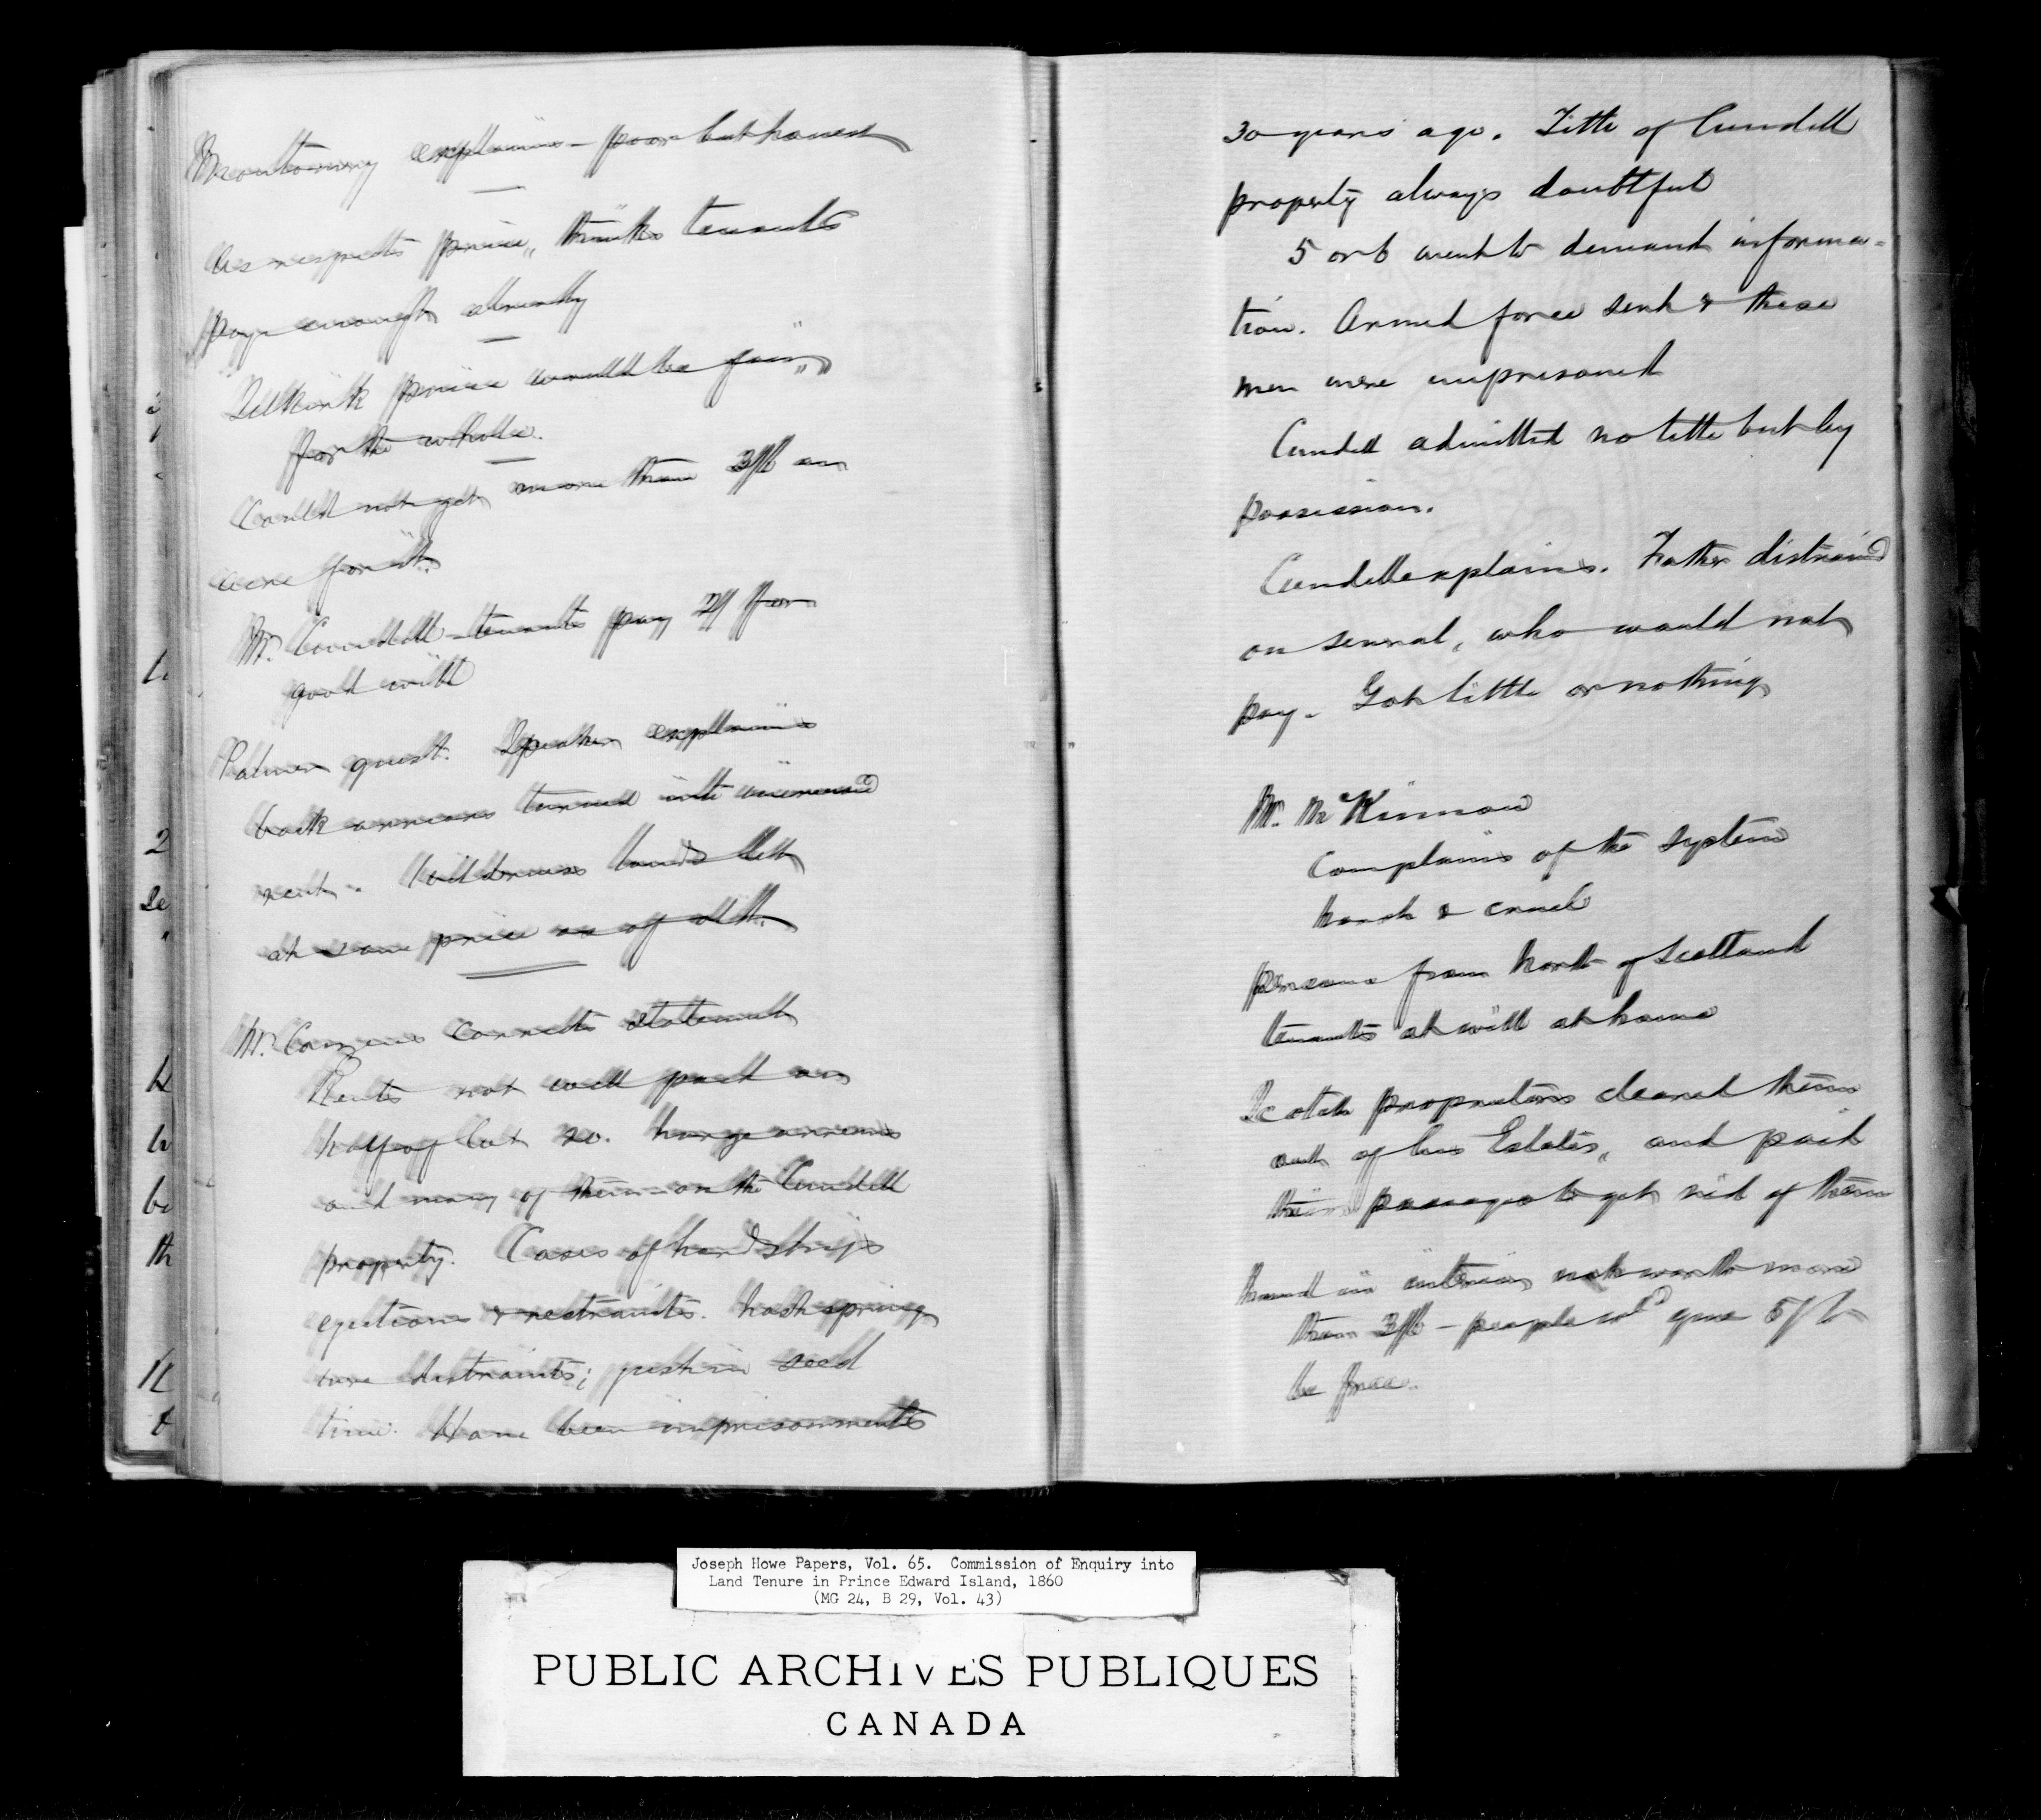 Montgomery explains - poor but honest
As respects price, thinks tenants
pay enough already
Selkirk price would be fair,
for the whole.
Could not get more than 3/6 an
acre for it.
Mr. Cundell - tenants pay 2/ for
good will
Palmer quest. Speaker explains
back arrears turned into increased
rent. Wilderness lands let
at same price as of old.
Mr. corrects statement
Rents not well paid on
half of Lot 20. large arrears
and many of them - on the Cundell
property. Cases of hardships
ejections & restraints. last spring
were distraints; just in seed
time. Have been imprisonments
30 years ago. Title of Cundell
property always doubtful
5 or 6 went to demand informa=
tion. Armed force sent & these
men were imprisoned
Cundell admitted no title but by
possession.
Cundell explains. Father distrained
on several, who would not
pay. Got little or nothing
Mr. McKinnon
Complains of the system
harsh & cruel
persons from North of Scotland
tenants at will at home
Scotch proprietors cleared them
out of his Estates, and paid
their passages to get rid of them
in interior not worth more
than 3/6 - people wd give 5/ to
be free.
2
Joseph Howe Papers, Vol. 65. Commission of Enquiry into
Land Tenure in Prince Edward Island, 1860
(MG 24, B 29, Vol. 43)
PUBLIC ARCHIVES PUBLIQUES
CANADA